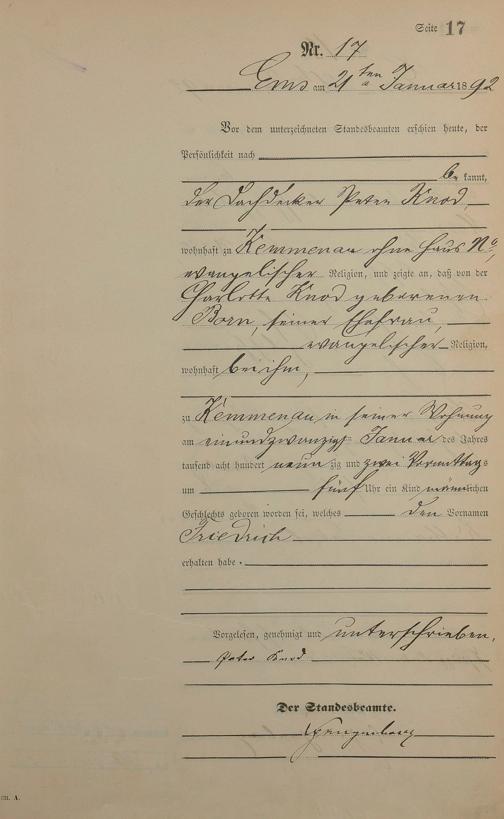 Seite 17
Nr. 17
Ems am 21ten Januar 1892
Vor dem unterzeichneten Standesbeamten erschien heute, der
Persönlichkeit nach
be kannt,
der Dachdecker Peter Knod,
wohnhaft zu Kemmenau ohne Haus No,
evangelischer Religion, und zeigte an, daß von der
Charlotte Knod geborenen
Born, seiner Ehefrau,
evangelischer Religion,
wohnhaft bei ihm,
zu Kemmenau in seiner Wohnung
am einundzwanzigt Januar des Jahres
tausend acht hundert neun zig und zwei Vormittags
um fünf Uhr ein Kind männlichen
Geschlechts geboren worden sei, welches den Vornamen
Friedrich
erhalten habe.
Vorgelesen, genehmigt und unterschrieben.
Peter Knod
Der Standesbeamte.
A.